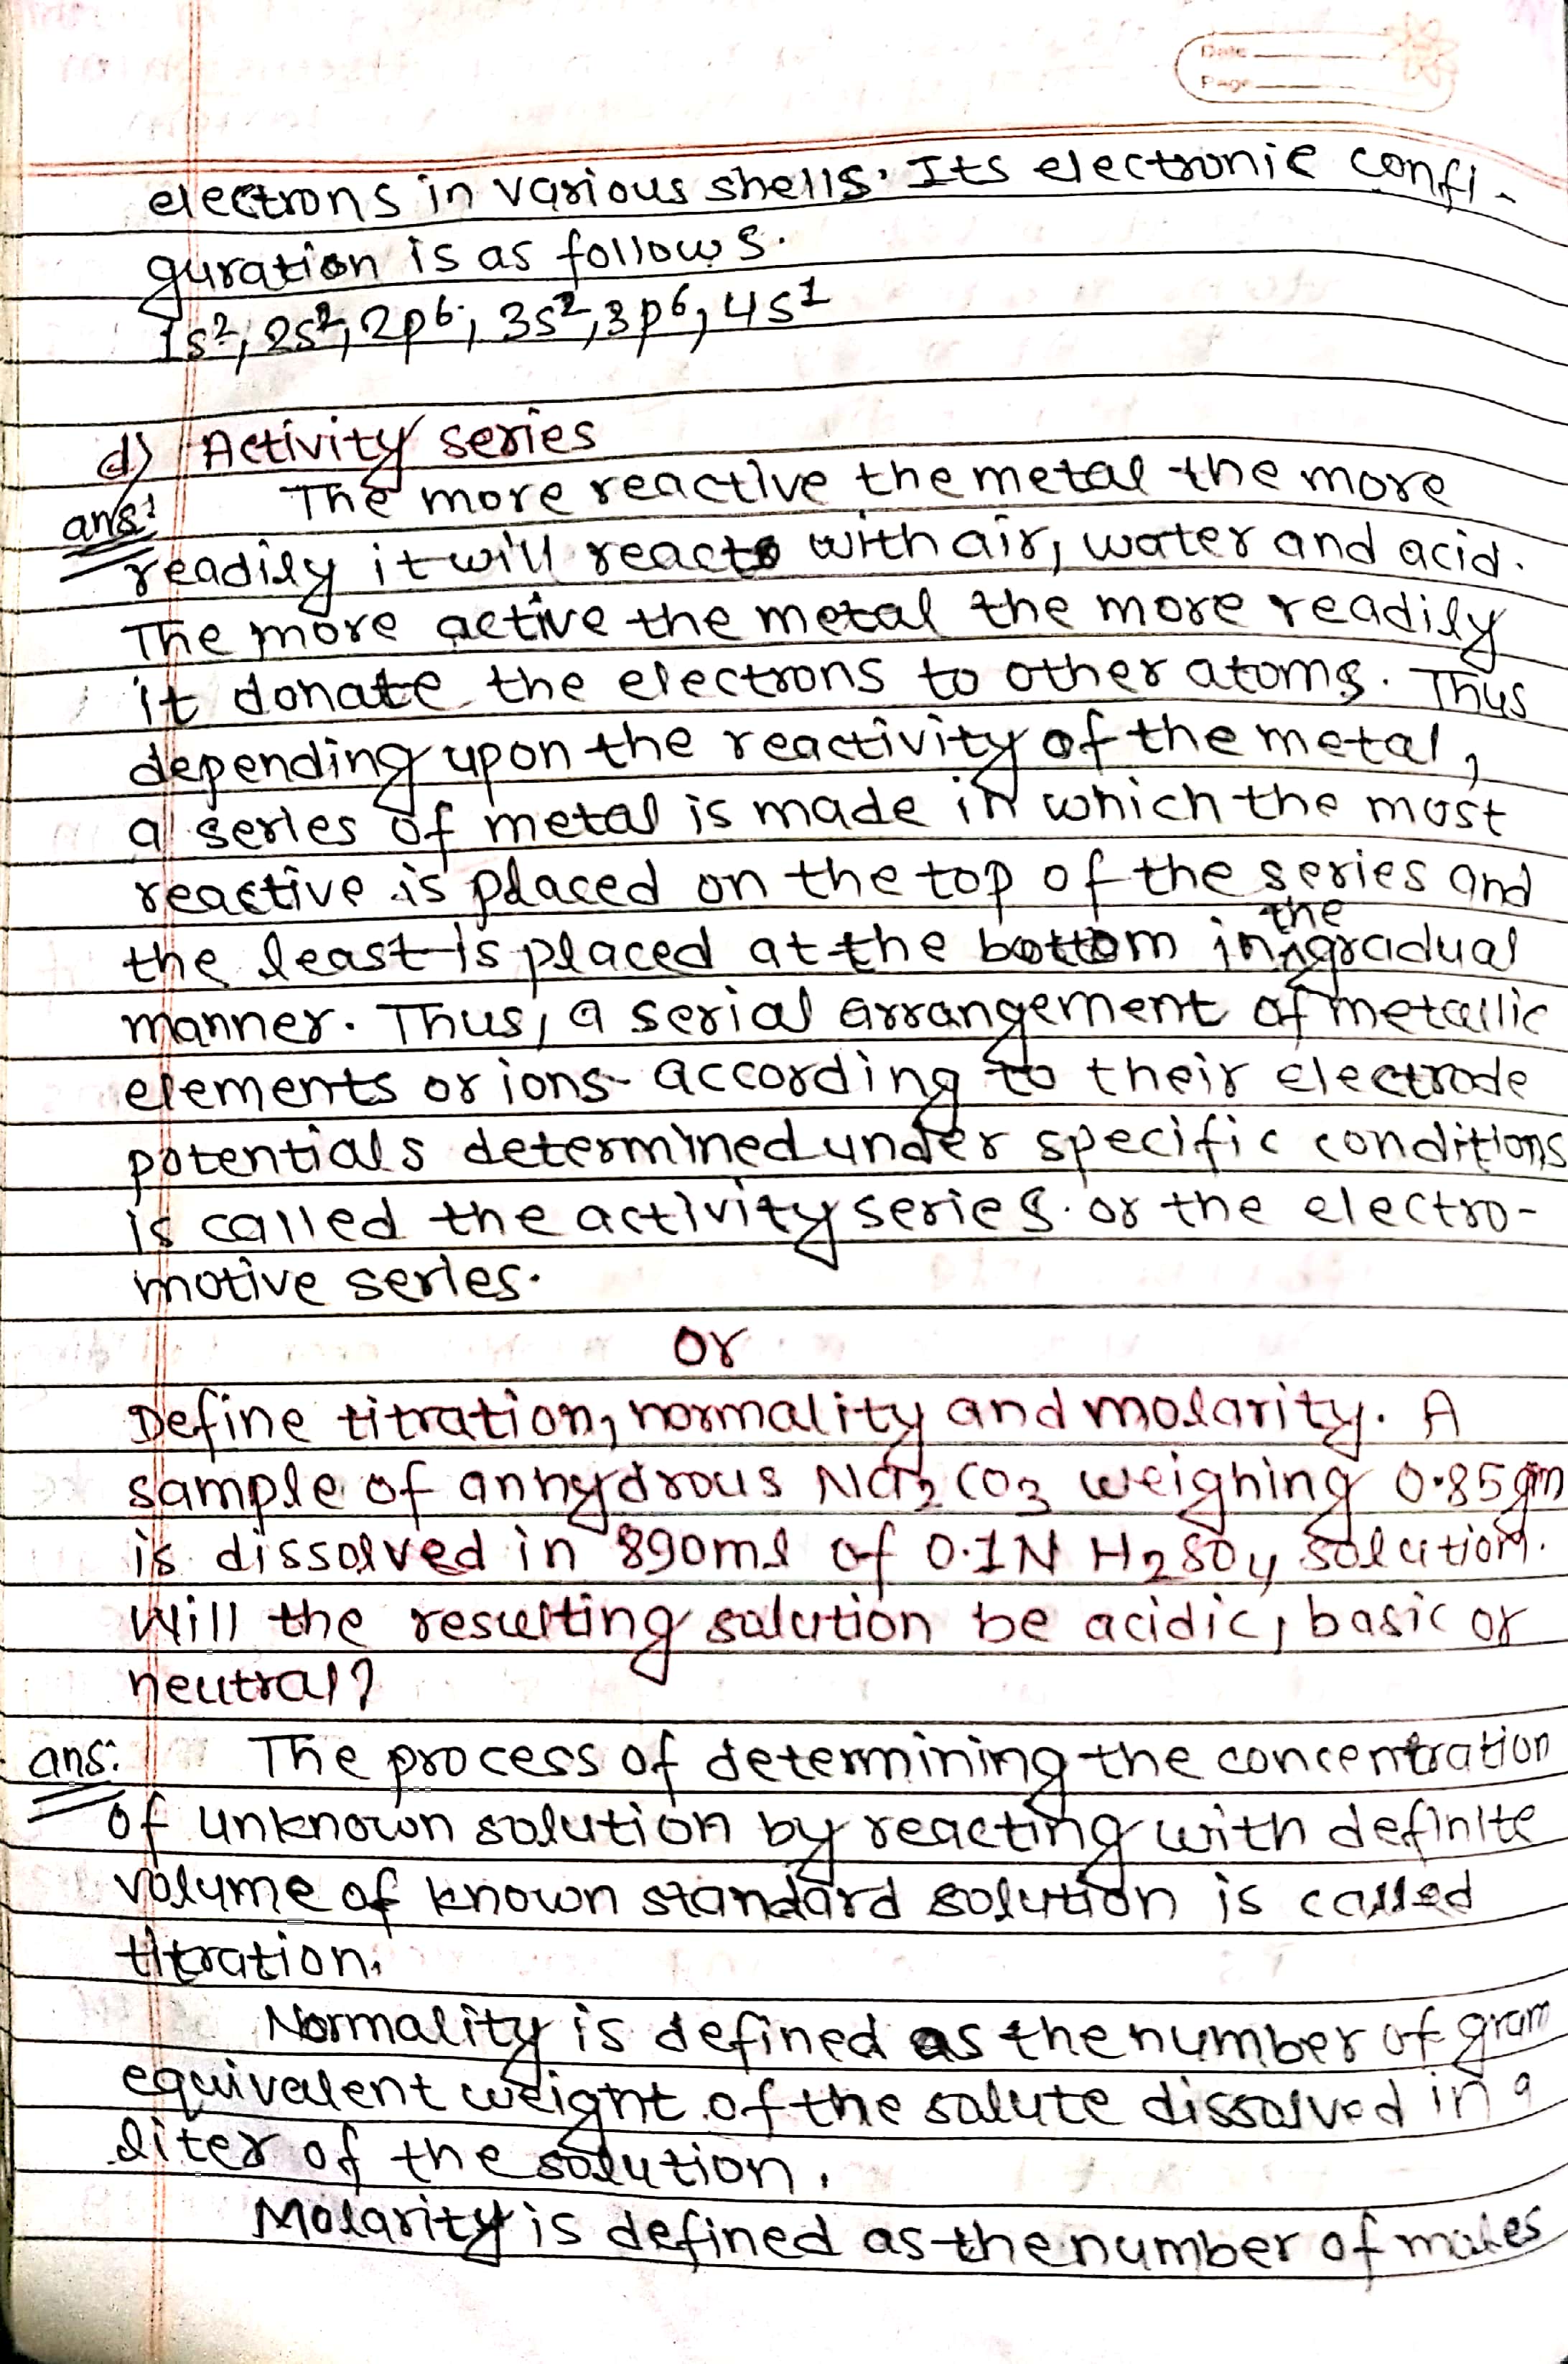 Date
Page
electrons in various shells. Its electronic confi-
guration is as follows.
1s², 2s², 2p⁶, 3s², 3p⁶, 4s¹
d) Activity series
ans: The more reactive the metal the more
readily it will reacts with air, water and acid.
The more active the metal the more readily
it donate the electrons to other atoms. Thus
depending upon the reactivity of the metal,
a series of metal is made in which the most
reactive is placed on the top of the series and
the least is placed at the bottom in the gradual
manner. Thus, a serial arrangement of metallic
elements or ions according to their electrode
potentials determined under specific conditions
is called the activity series or the electro-
motive series.
or
Define titration, normality and molarity. A
sample of anhydrous Na₂CO₃ weighing 0.85gm
is dissolved in 890ml of 0.1N H₂SO₄ solution.
Will the resulting solution be acidic, basic or
neutral?
ans: The process of determining the concentration
of unknown solution by reacting with definite
volume of known standard solution is called
titration.
Normality is defined as the number of gram
equivalent weight of the solute dissolved in a
liter of the solution.
Molarity is defined as the number of moles